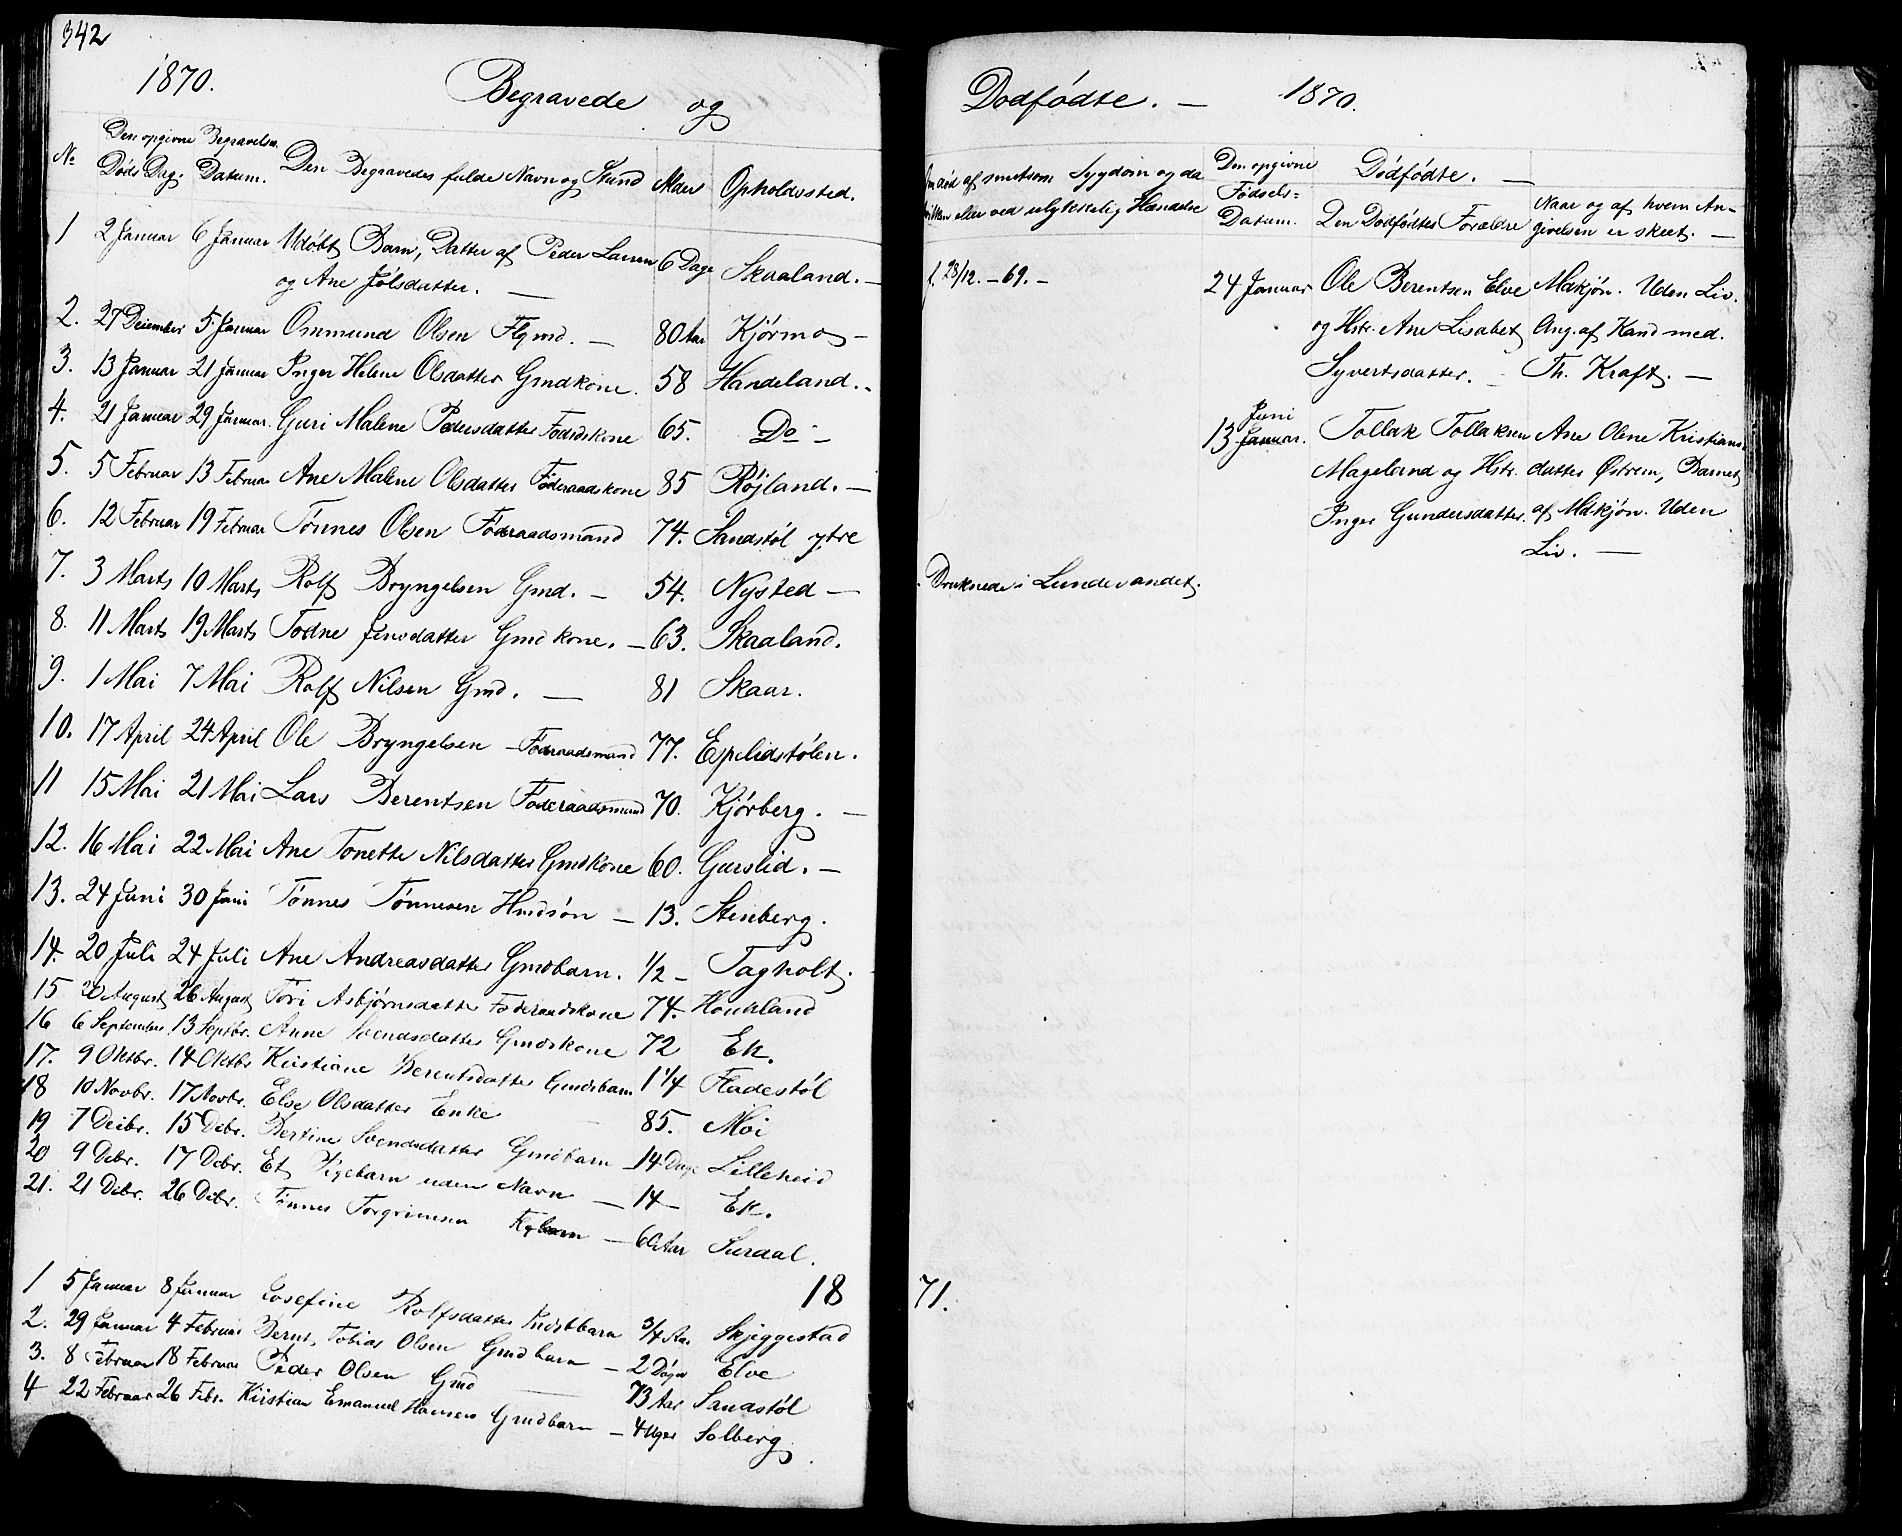 342
1870. Begravede og
No Den opgivne Døds Dag. Begravelses Datum. Den Begravedes fulde Navn og Stand Alder Opholdssted.
1 2 Januar 6 Januar Udøbt Barn, Datter af Peder Larsen 6 Dage Skaaland. —
og Ane Jølsdatter. —
2. 27 December 5 Januar Ommund Olsen Flgmd. — 80 Aar Kjørmo —
3. 13 Januar 21 Januar Inger Helene Olsdatter Gmdkone. 58 Handeland. -
4. 21 Januar 29 Januar. Guri Malene Pedersdatter Födrdskone 65. Do —
5. 5 Februar 13 Februar Ane Malene Olsdatter Föderaadskone 85 Röjland. —
6. 12 Februar 19 Februar Tönnes Olsen Föderaadsmand 74. Sandstöl ytre
7. 3 Marts 10 Marts Rolf Bryngelsen Gmd. — 54. Nysted —
8. 11 Marts 19 Marts Todne Jensdatter Gmdkone. — 63. Skaaland.
9. 1 Mai 7 Mai Rolf Nilsen Gmd. — 81 Skaar.
10. 17 April 24 April Ole Bryngelsen — Föderaadsmand 77. Espelidstölen.
11 15 Mai 21 Mai Lars Berentsen Föderaadsmand 70. Kjörberg. —
12. 16 Mai 22 Mai Ane Tonette Nilsdatter Gmdkone 60. Gurslid. —
13. 24 Juni 30 Juni Tönnes Tönnesen Hmdsön — 13. Stenberg.
14. 20 Juli 24 Juli Ane Andreasdatter Gmdbarn. 1/2 — Tagholt.
15 20 August 26 August Tori Asbjörnsdatter Föderaadskone 74. Houkland
16 6 September 13 Septbr. Anne Svendsdatter Gmdskone 72 Ek.
17. 9 Oktbr. 14 Oktbr Kristiane Berentsdatter Gmdsbarn 1 1/4 Fladestöl
18 10 Novbr. 17 Novbr. Else Olsdatter Enke 85. Moi
19 7 Decbr. 15 Debr. Bertine Svendsdatter Gmdbarn — 14 Dage Lilleheid
20 9 Debr. 17 Debr. Et Pigebarn uden Navn — 14 — Ek.
21. 21 Debr. 26 Debr. Tönnes Torgrimsen — Surdal.
18
1 5 Januar 8 Januar Josefine Rolfsdatter Indstbarn 3/4 Aar Skjeggestad
2. 29 Januar 4 Februar Bernt Tobias Olsen Gmdbarn — 2 Döger Elve
3. 8 Februar 18 Februar Peder Olsen Gmd — 73 Aar Sandstöl
4 22 Februar 26 Febr. Kristian Emanuel Hansen Gmdbarn — 4 Uger Solberg.
Dodfödte. — 1870.
Om död af smitsom Sygdom og da hvilken eller ved ulykkelig Hændelse
Den opgivne Födsels= Datum.
Dödfödte. —
Den Dodfödtes Forældre
Naar og af hvem Angivelsen er skeet. —
f. 28/12. — 69. —
24 Januar Ole Berentsen Elve Mdkjön. Uden Liv.
og Hstr. Ane Lisabet Ang. af Kand med.
Syvertsdatter. — Th. Kraft. —
Juni
13 Januar. Tollak Tollaksen Ane Olene Kristians
Mageland og Hstr. datter Östrem, Barnet
Inger Gundersdatter. af Mdkjön. Uden
Liv. —
Druknede i Lundevandet.
71.